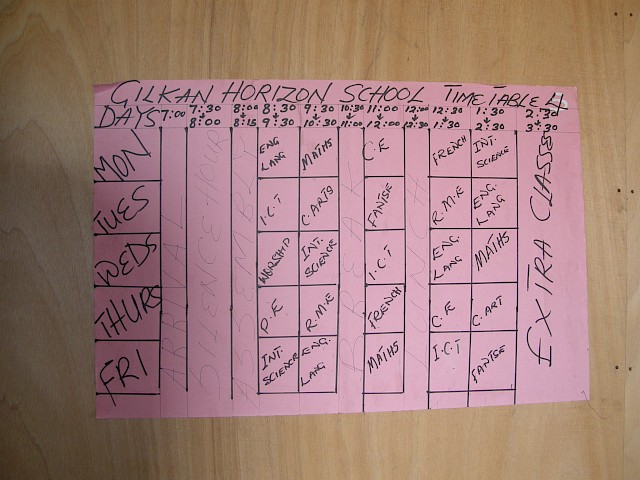 GILKAN HORIZON SCHOOL TIMETABLE 4
DAYS 7:00 7:30 8:00 8:00 8:15 8:30 9:30 9:30 10:30 10:30 11:00 11:00 12:00 12:00 12:30 12:30 1:30 1:30 2:30 2:30 3:30
MON ENG LANG MATHS C.E FRENCH INT. SCIENCE
TUES I.C.T C.ARTS FANTSE R.M.E ENG. LANG
WEDS WORSHIP INT. SCIENCE I.C.T ENG. LANG MATHS
THURS P.E R.M.E FRENCH C.E C.ART
FRI INT. SCIENCE ENG. LANG MATHS I.C.T FANTSE
ARRIVAL
SILENCE HOUR
ASSEMBLY
BREAK
LUNCH
EXTRA CLASSES